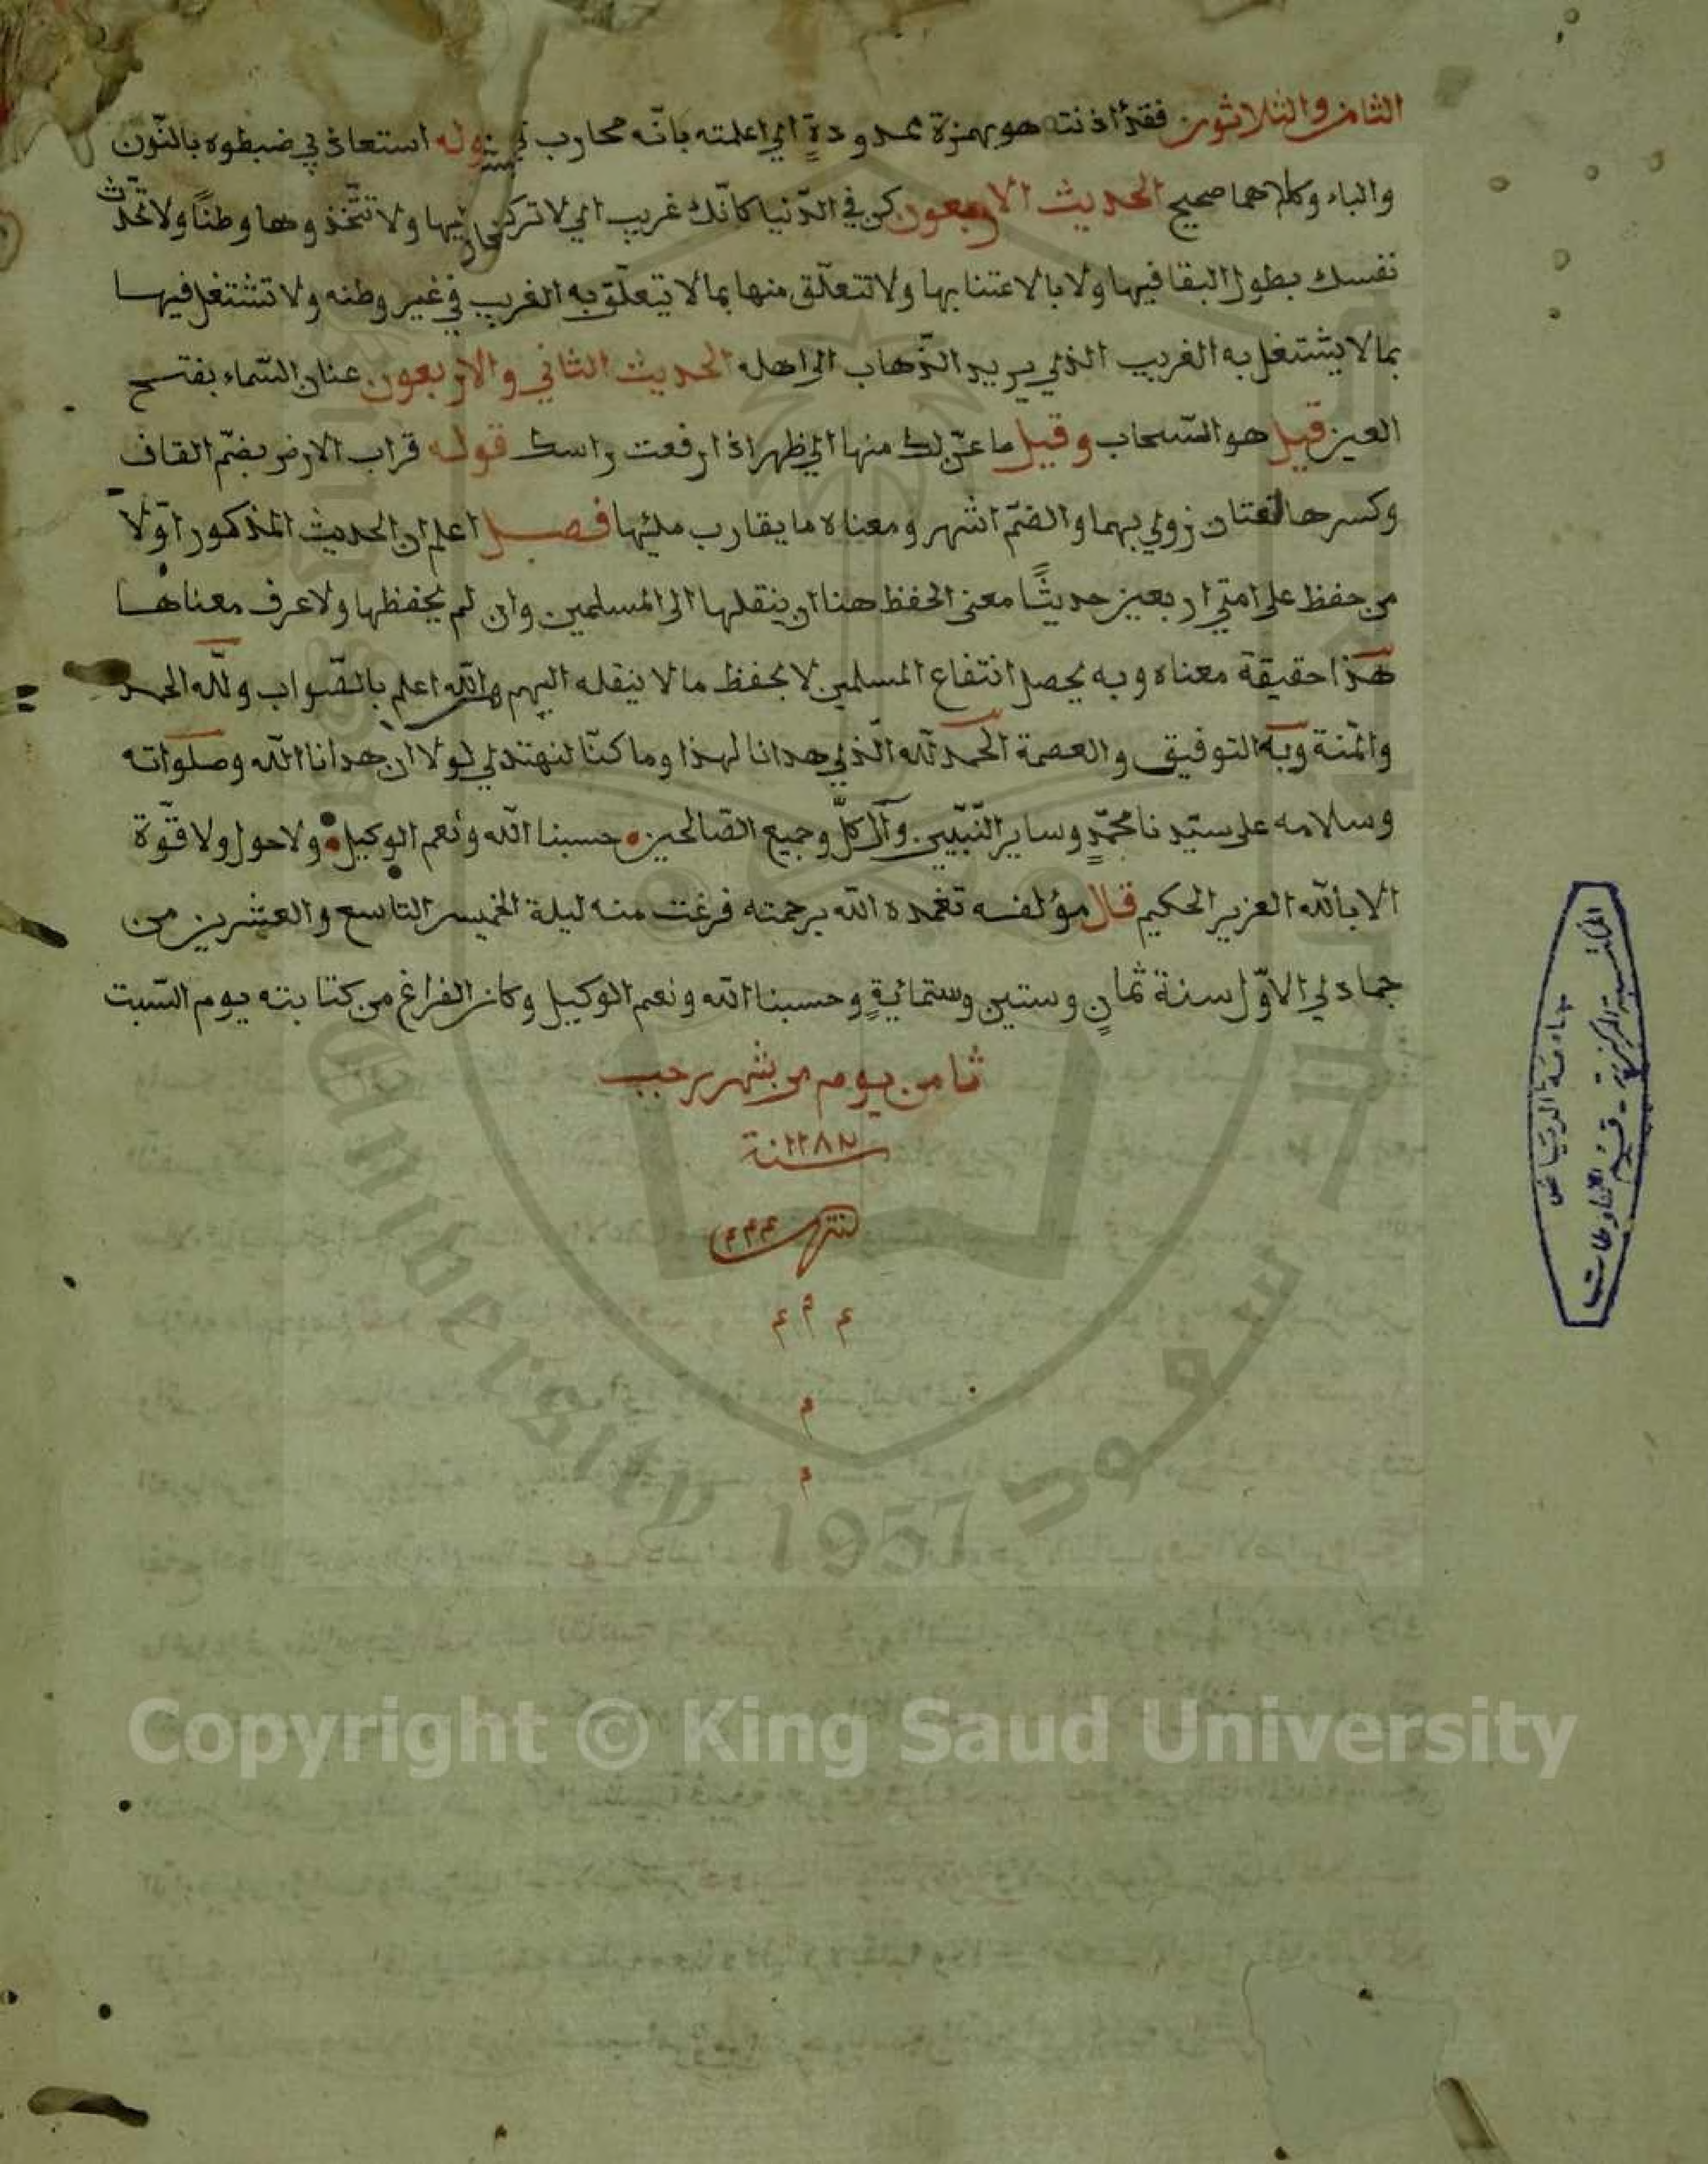 الثامن والثلاثون فقد اذنته هو بهمزة ممدودةٍ اي اعلمته بانّه محارب لي قوله استعاذني ضبطوه بالنّون
والباء وكلاهما صحيح الحديث الاربعون كن في الدّنيا كانّك غريب اي لا تركن اليها ولا تتّخذوها وطنًا ولا تحدّث
نفسك بطول البقا فيها ولا بالاعتنا بها ولا تتعلّق منها بما لا يتعلّق به الغريب في غير وطنه ولا تشتغل فيها
بما لا يشتغل به الغريب الذي يريد الذّهاب الى اهله الحديث الثاني والاربعون عنان السّماء بفتح
العين قيل هو السّحاب وقيل ما عنّ لك منها اي ظهر اذا رفعت راسك قوله قراب الارض بضمّ القاف
وكسرها لغتان روي بهما والضمّ اشهر ومعناه ما يقارب مليها فصل اعلم ان الحديث المذكور اوّلا
من حفظ على امتي اربعين حديثًا معنى الحفظ هنا ان ينقلها الى المسلمين وان لم يحفظها ولا عرف معناها
هذا حقيقة معناه وبه يحصل انتفاع المسلمين لا بحفظ ما لا ينقله اليهم والله اعلم بالصّواب ولله الحمد
والمنة وبه التوفيق والعصمة الحمد لله الّذي هدانا لهذا وما كنّا لنهتدي لولا ان هدانا الله وصلواته
وسلامه على سيّدنا محمّدٍ وساير النّبيّين وآل كلٍّ وجميع الصّالحين حسبنا الله ونعم الوكيل ولا حول ولا قوّة
الا بالله العزيز الحكيم قال مؤلفه تغمده الله برحمته فرغت منه ليلة الخميس التاسع والعشرين من
جمادي الاوّل سنة ثمانٍ وستين وستمائةٍ وحسبنا الله ونعم الوكيل وكان الفراغ من كتابته يوم السّبت
ثامن يوم من شهر رجب
سنة ١٢٨٢
انتهت م م م
م م م
م
م
جامعة الرياض
المكتبة المركزية - قسم المخطوطات
University 1957
سعود
Copyright © King Saud University